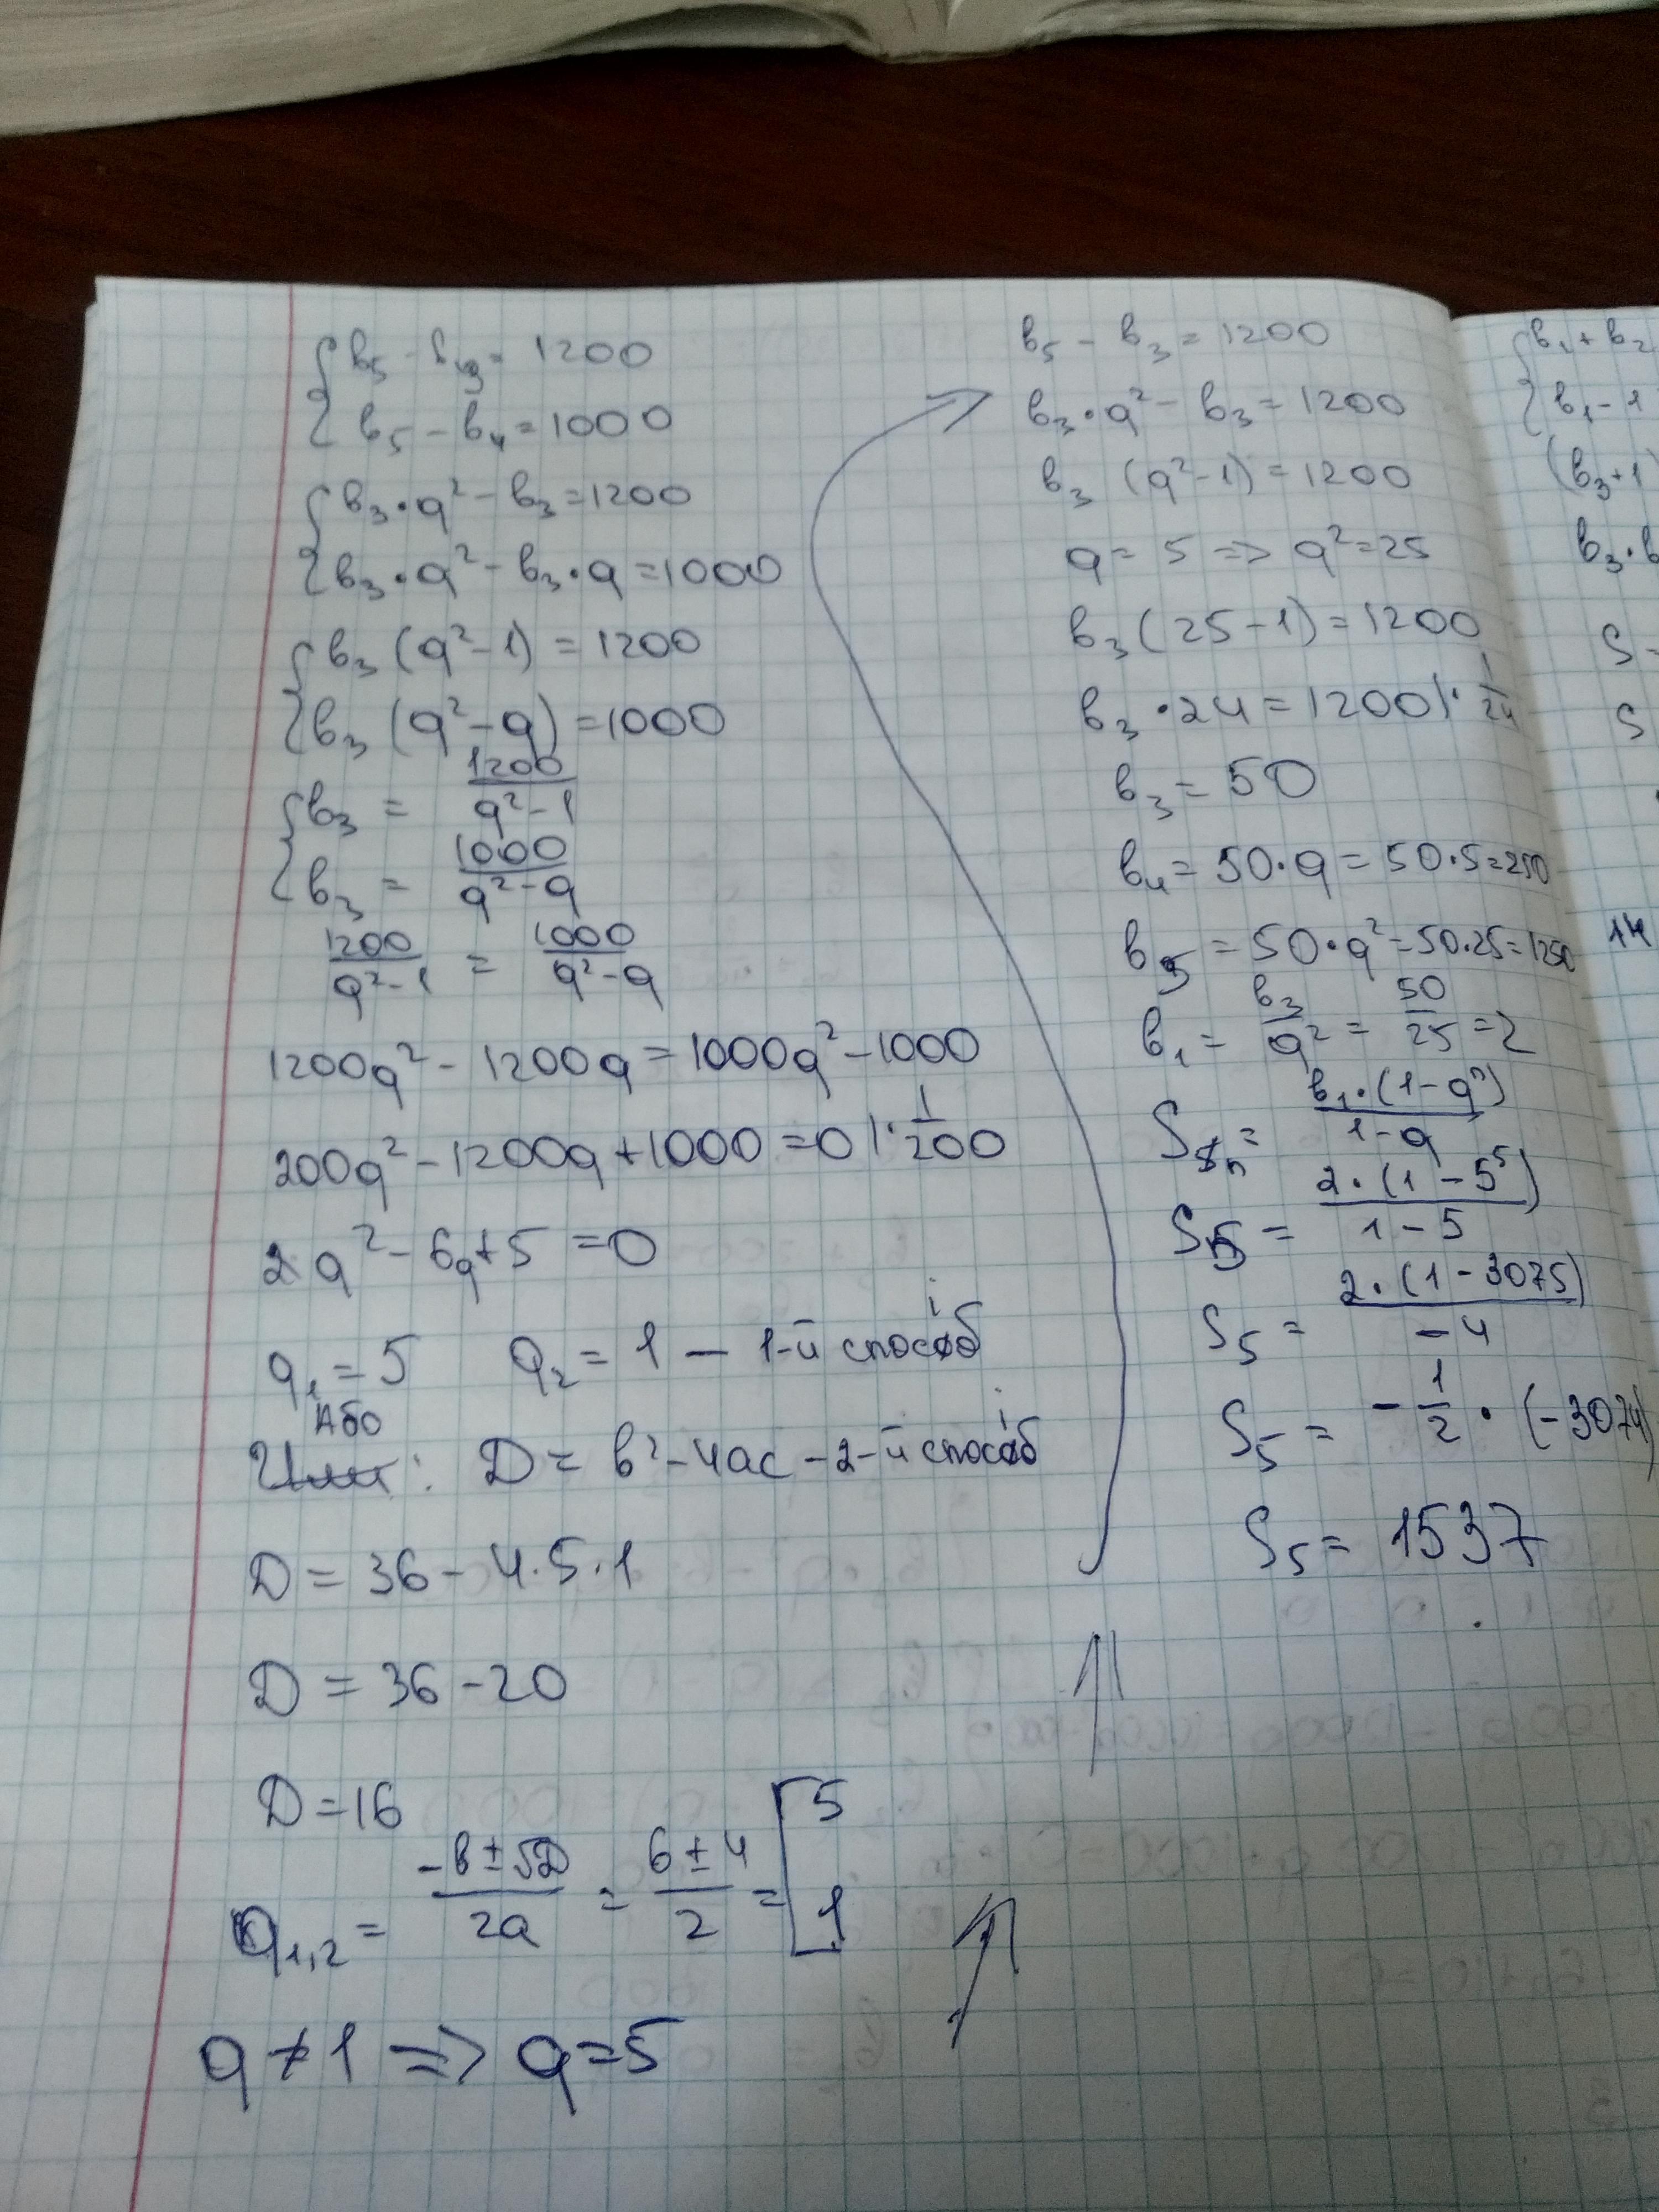 b₅ - b₃ = 1200
b₅ - b₄ = 1000
b₃·q² - b₃ = 1200
b₃·q² - b₃·q = 1000
b₃(q² - 1) = 1200
b₃(q² - q) = 1000
b₃ = 1200/(q² - 1)
b₃ = 1000/(q² - q)
1200/(q² - 1) = 1000/(q² - q)
1200q² - 1200q = 1000q² - 1000
200q² - 1200q + 1000 = 0 |·1/200
q² - 6q + 5 = 0
q₁ = 5 q₂ = 1 — 1-й спосіб
Або
: D = b² - 4ac - 2-й спосіб
D = 36 - 4·5·1
D = 36 - 20
D = 16
q₁,₂ = (-b ± √D)/2a = (6 ± 4)/2 = [5 1
q ≠ 1 => q = 5
b₅ - b₃ = 1200
b₃·q² - b₃ = 1200
b₃(q² - 1) = 1200
q = 5 => q² = 25
b₃(25 - 1) = 1200
b₃·24 = 1200 |·1/24
b₃ = 50
b₄ = 50·q = 50·5 = 250
b₅ = 50·q² = 50·25 = 1250
b₁ = b₃/q² = 50/25 = 2
Sₙ = b₁·(1 - qⁿ)/(1 - q)
S₅ = 2·(1 - 5⁵)/(1 - 5)
S₅ = 2·(1 - 3075)/(-4)
S₅ = -1/2·(-3074)
S₅ = 1537
b₁ + b₂
b₁ - 1
(b₃ + 1
b₃·b
S
S
14